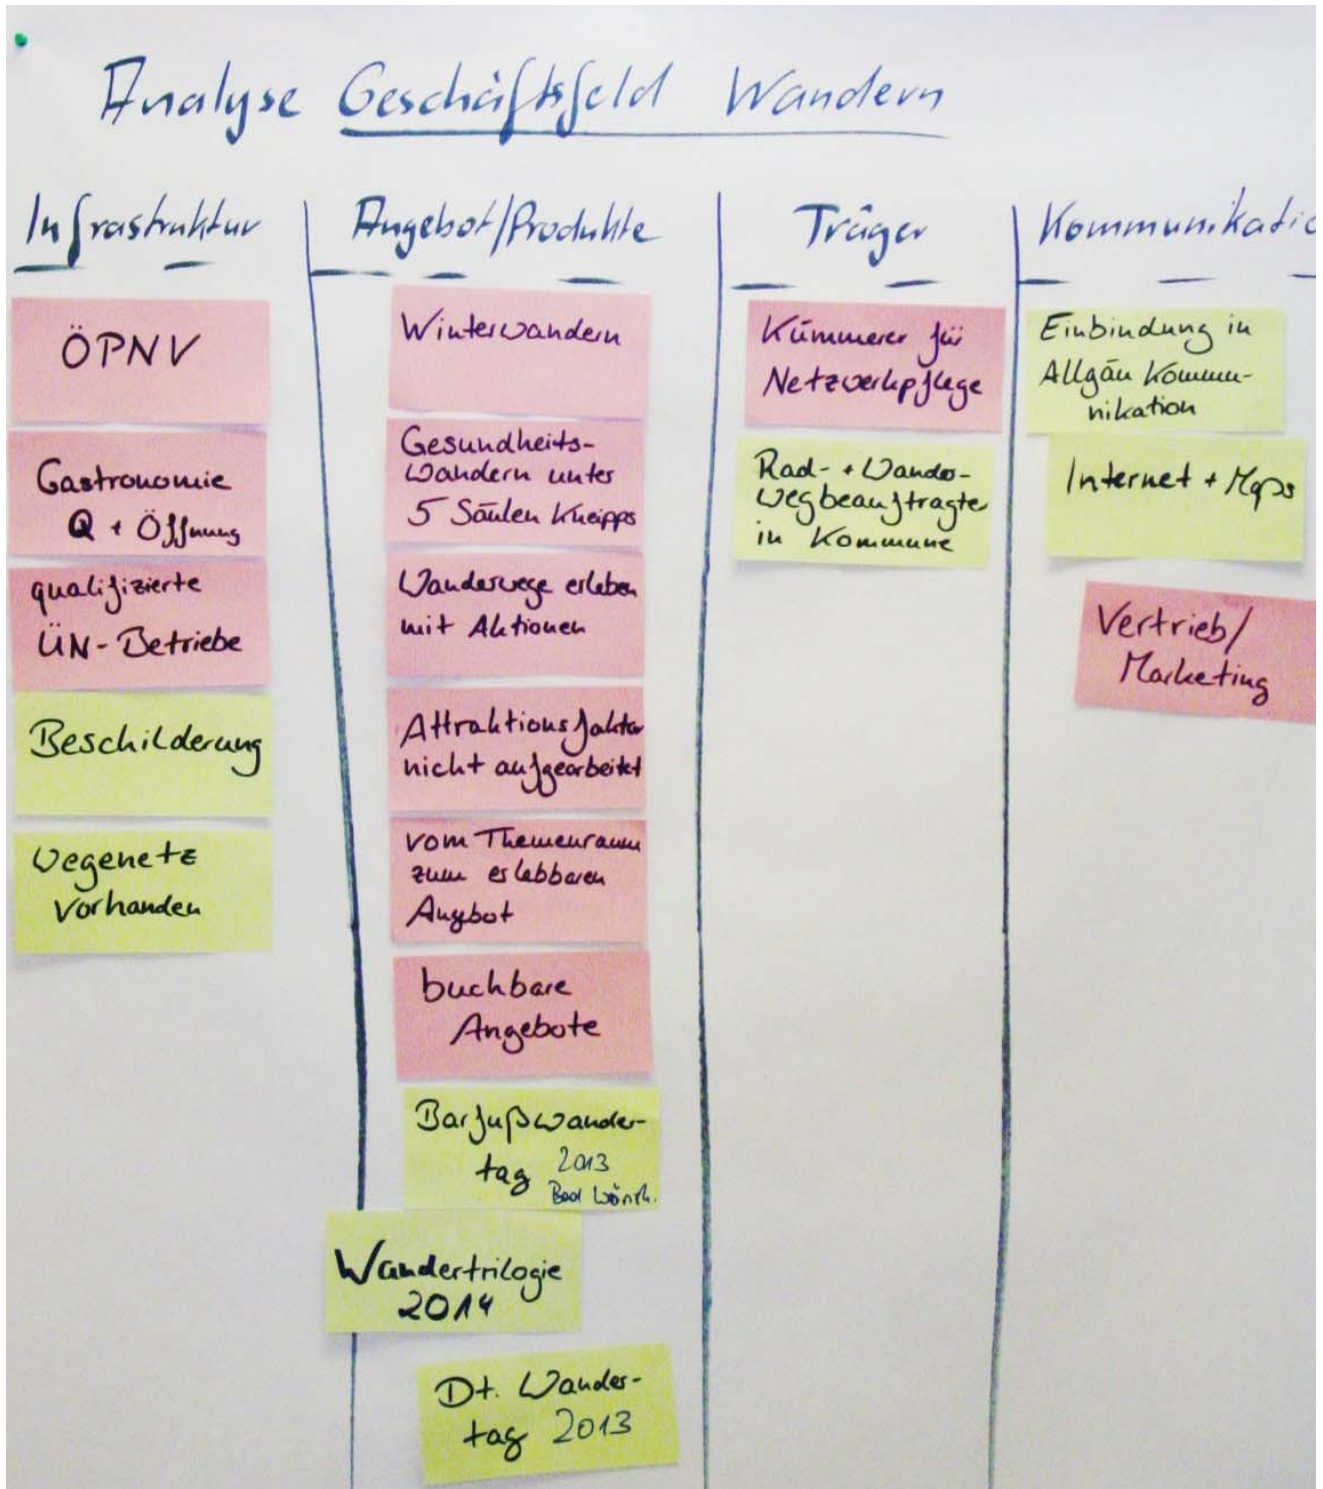 Analyse Geschäftsfeld Wandern
Infrastruktur
ÖPNV
Gastronomie
Q + Öffnung
qualifizierte
ÜN-Betriebe
Beschilderung
Wegenetz
vorhanden
Angebot/Produkte
Winterwandern
Gesundheits-
Wandern unter
5 Säulen Kneipps
Wanderwege erleben
mit Aktionen
Attraktionsfaktor
nicht aufgearbeitet
vom Themenraum
zum erlebbaren
Angebot
buchbare
Angebote
Barfußwander-
tag 2013
Bad Wörish.
Wandertrilogie
2014
Dt. Wander-
tag 2013
Träger
Kümmerer für
Netzwerkpflege
Rad- + Wander-
wegbeauftragte
in Kommune
Kommunikatio
Einbindung in
Allgäu Kommu-
nikation
Internet + Apps
Vertrieb/
Marketing